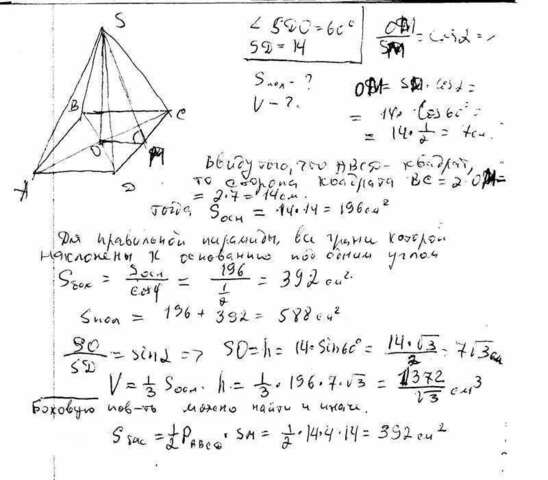 S
B
C
O
M
A
D
∠ SDO = 60°
SD = 14
Sпол - ?
V - ?
OM/SM = cos α =>
OM = SM · cos α =
= 14 · cos 60° =
= 14 · 1/2 = 7 см.
Ввиду того, что ABCD - квадрат,
то сторона квадрата BC = 2 · OM =
= 2 · 7 = 14 см.
тогда Sосн = 14 · 14 = 196 см²
Для правильной пирамиды, все грани которой
наклонены к основанию под одним углом
Sбок = Sосн/cos φ = 196/(1/2) = 392 см².
Sпол = 196 + 392 = 588 см²
SO/SD = sin α => SO = h = 14 · sin 60° = 14 · √3/2 = 7√3 см
V = 1/3 Sосн · h = 1/3 · 196 · 7 · √3 = 1372/√3 см³
Боковую пов-ть можно найти и иначе.
Sбок = 1/2 P ABCD · SM = 1/2 · 14 · 4 · 14 = 392 см²